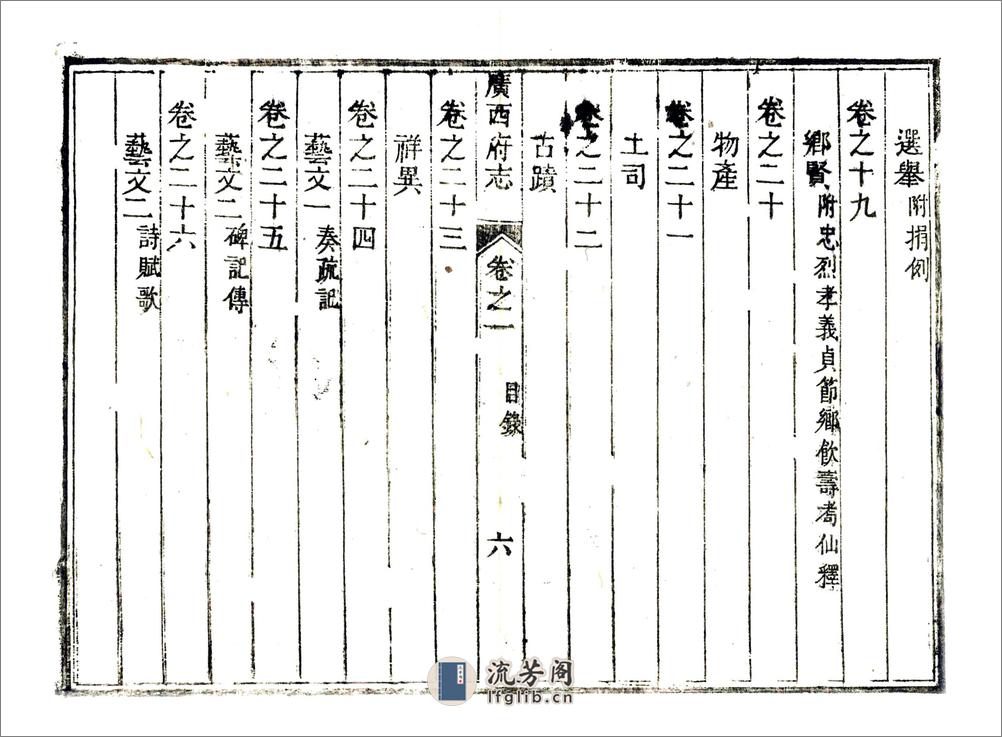 選舉附捐例
卷之十九
鄉賢附忠烈孝義貞節鄉飲壽耈仙釋
卷之二十
物產
卷之二十一
土司
卷之二十二
古蹟
廣西府志 卷之一 目錄 六
卷之二十三
祥異
卷之二十四
藝文一奏疏記
卷之二十五
藝文二碑記傳
卷之二十六
藝文二詩賦歌
流芳阁
lfglib.cn